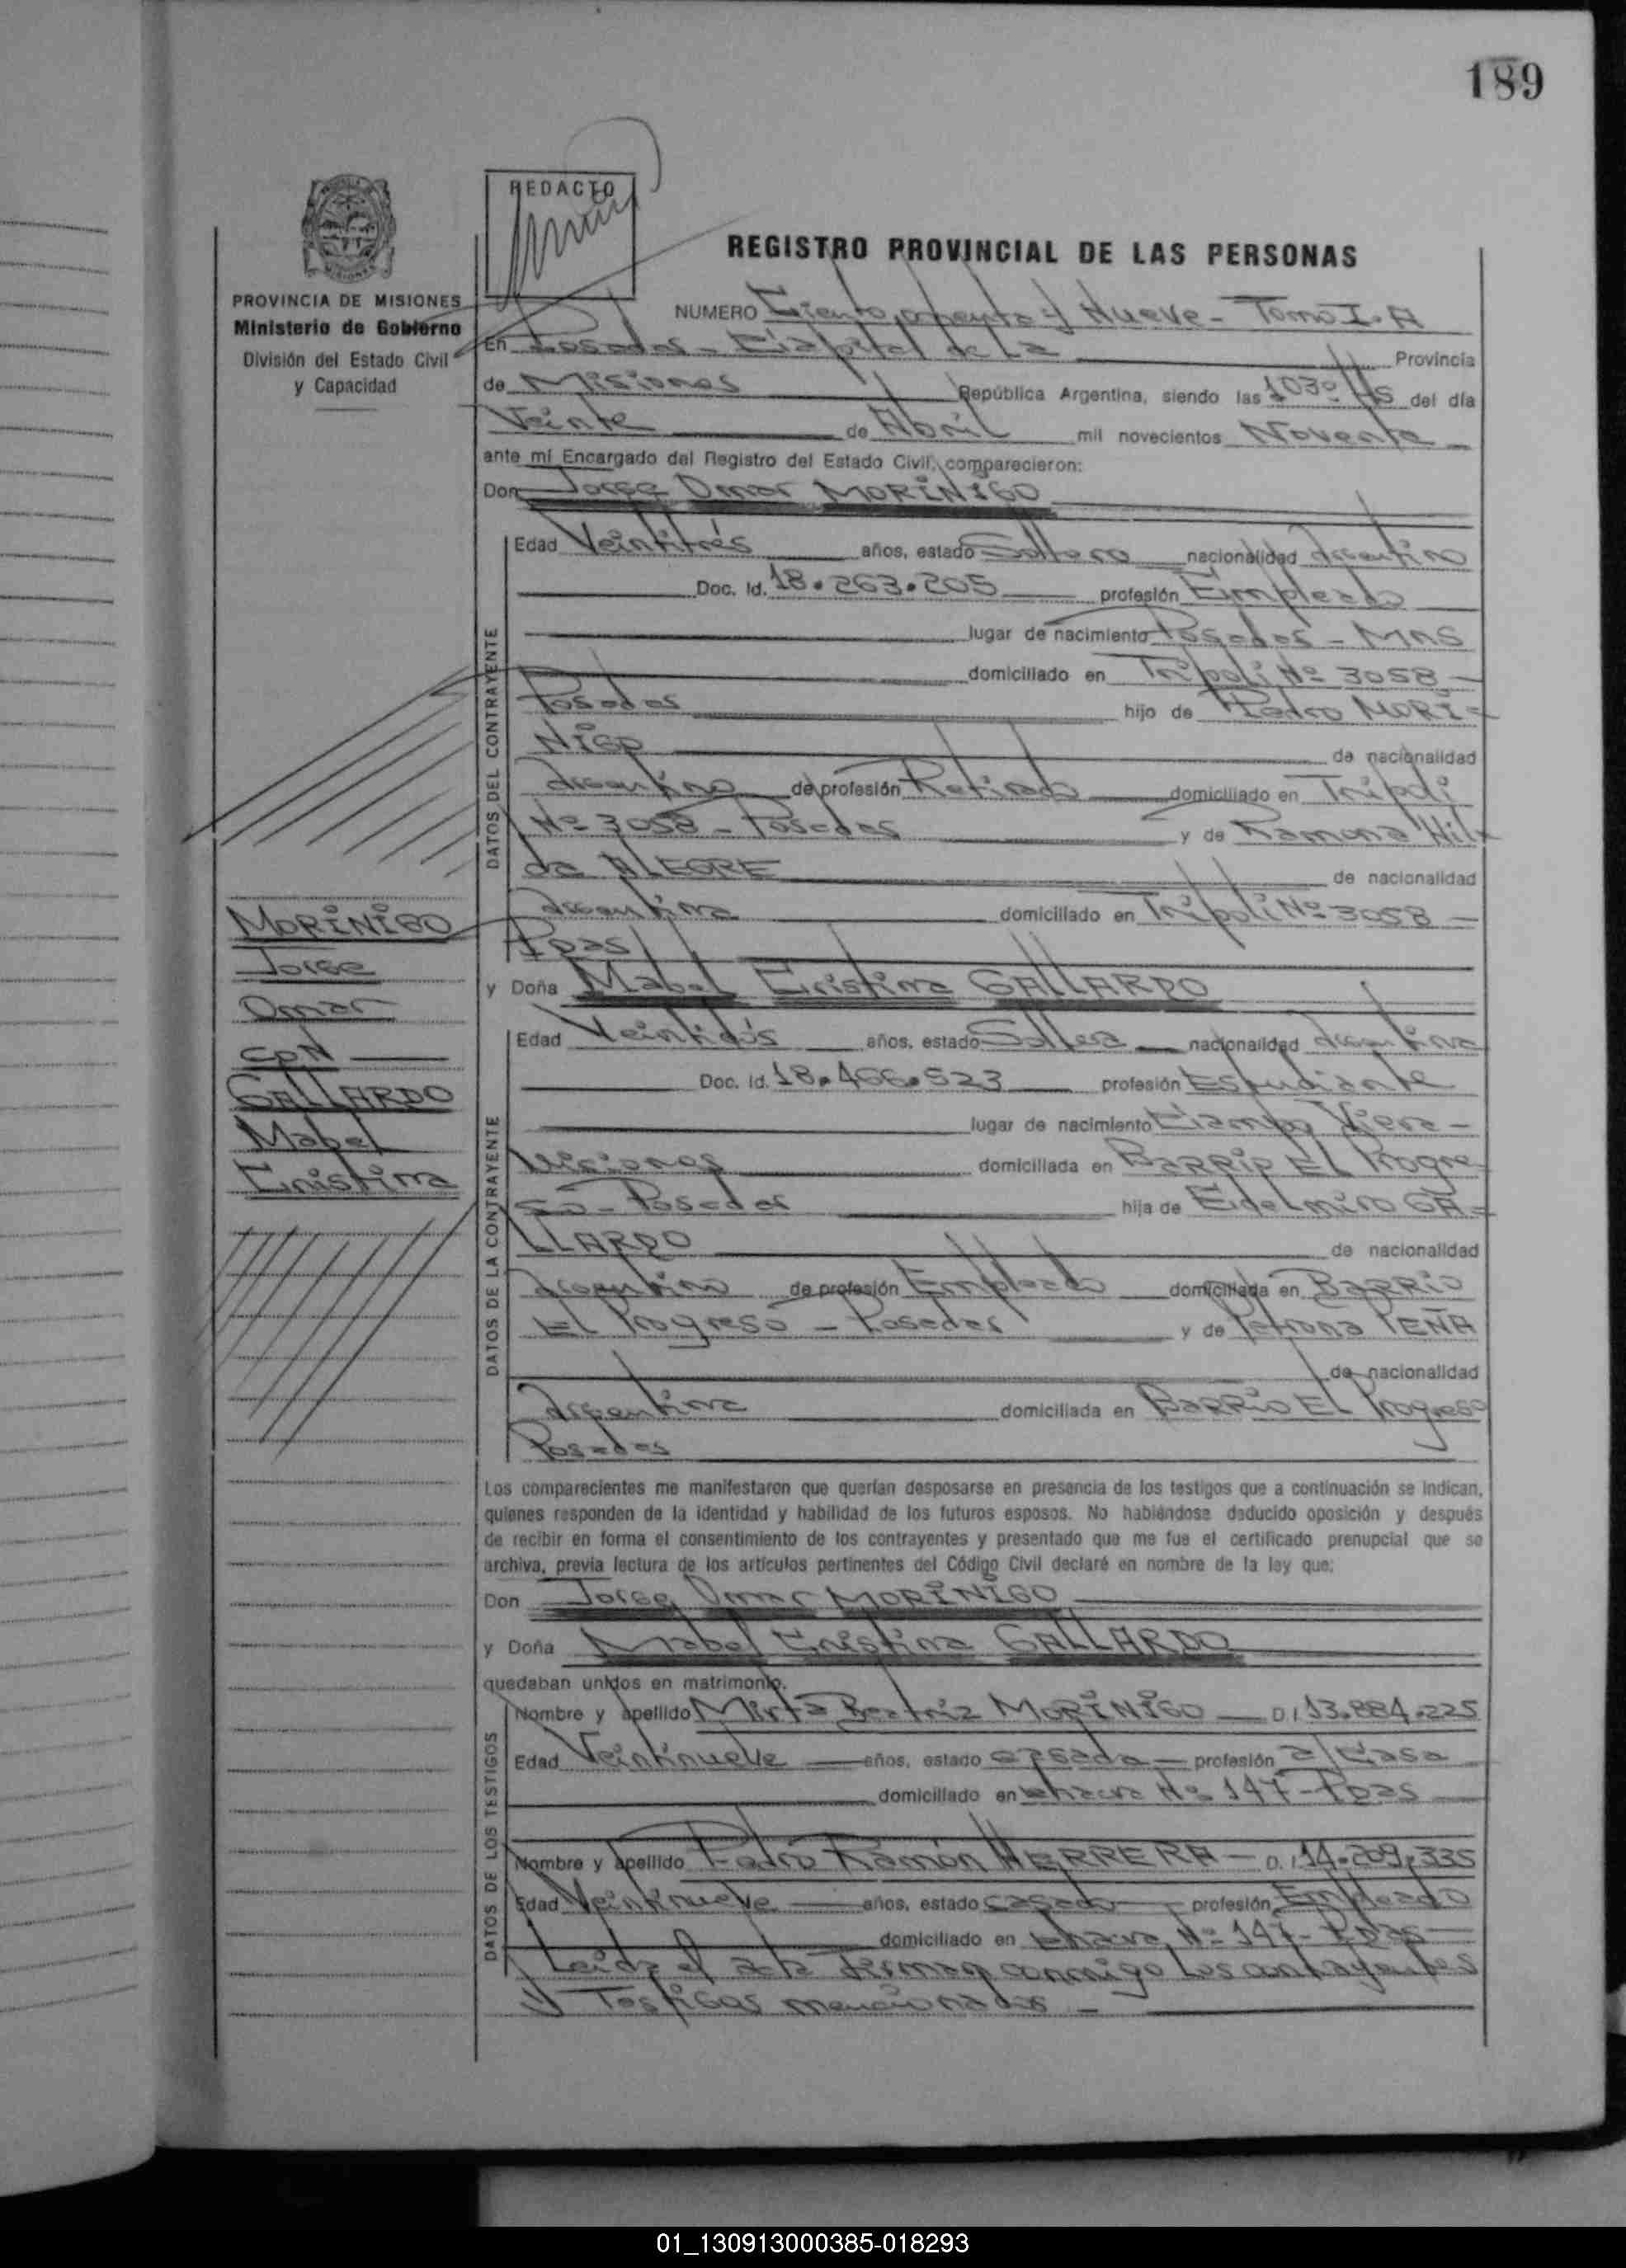 189
REDACTO
REGISTRO PROVINCIAL DE LAS PERSONAS
PROVINCIA DE MISIONES
Ministerio de Gobierno
División del Estado Civil
y Capacidad
NUMERO Ciento ochenta y Nueve - Tomo I. A
En Posadas - Capital de La Provincia
de Misiones República Argentina, siendo las 1030 Hs del día
Veinte de Abril mil novecientos Noventa
ante mí Encargado del Registro del Estado Civil, comparecieron:
Don Jorge Omar MORINIGO
DATOS DEL CONTRAYENTE
Edad Veintitrés años, estado Soltero nacionalidad Argentino
Doc. Id. 18.263.205 profesión Empleado
lugar de nacimiento Posadas - Mns
domiciliado en Tripoli Nº 3058 -
Posadas hijo de Pedro MORI=
NIGO de nacionalidad
Argentino de profesión Retirado domiciliado en Tripoli
Nº 3058 - Posadas y de Ramona Hil
da ALEGRE de nacionalidad
Argentina domiciliado en Tripoli Nº 3058 -
Ppas
MORINIGO
Jorge
Omar
CON
GALLARDO
Mabel
Cristina
y Doña Mabel Cristina GALLARDO
DATOS DE LA CONTRAYENTE
Edad Veintidós años, estado Soltera nacionalidad Argentina
Doc. Id. 18.466.523 profesión Estudiante
lugar de nacimiento Campo Viera -
Misiones domiciliada en BARRIO EL Progre
so - Posadas hija de Eidelmiro GA=
LLARDO de nacionalidad
Argentino de profesión Empleado domiciliada en BARRIO
EL Progreso - Posadas y de Petrona PEÑA
de nacionalidad
Argentina domiciliada en BARRIO EL Progreso
Posadas
Los comparecientes me manifestaron que querían desposarse en presencia de los testigos que a continuación se indican,
quienes responden de la identidad y habilidad de los futuros esposos. No habiéndose deducido oposición y después
de recibir en forma el consentimiento de los contrayentes y presentado que me fue el certificado prenupcial que se
archiva, previa lectura de los artículos pertinentes del Código Civil declaré en nombre de la ley que:
Don Jorge Omar MORINIGO
y Doña Mabel Cristina GALLARDO
quedaban unidos en matrimonio.
DATOS DE LOS TESTIGOS
Nombre y apellido Mirta Beatriz MORINIGO - D.I 13.884.225
Edad Veintinueve años, estado casada profesión a/ Casa
domiciliado en chacra Nº 147 - Pdas
Nombre y apellido Pedro Ramón HERRERA - D.I 14.209.335
Edad Veintinueve años, estado casado profesión Empleado
domiciliado en chacra Nº 147 - Pdas
Leida el acta firman conmigo Los contrayentes
y Testigos mencionados -
01_130913000385-018293